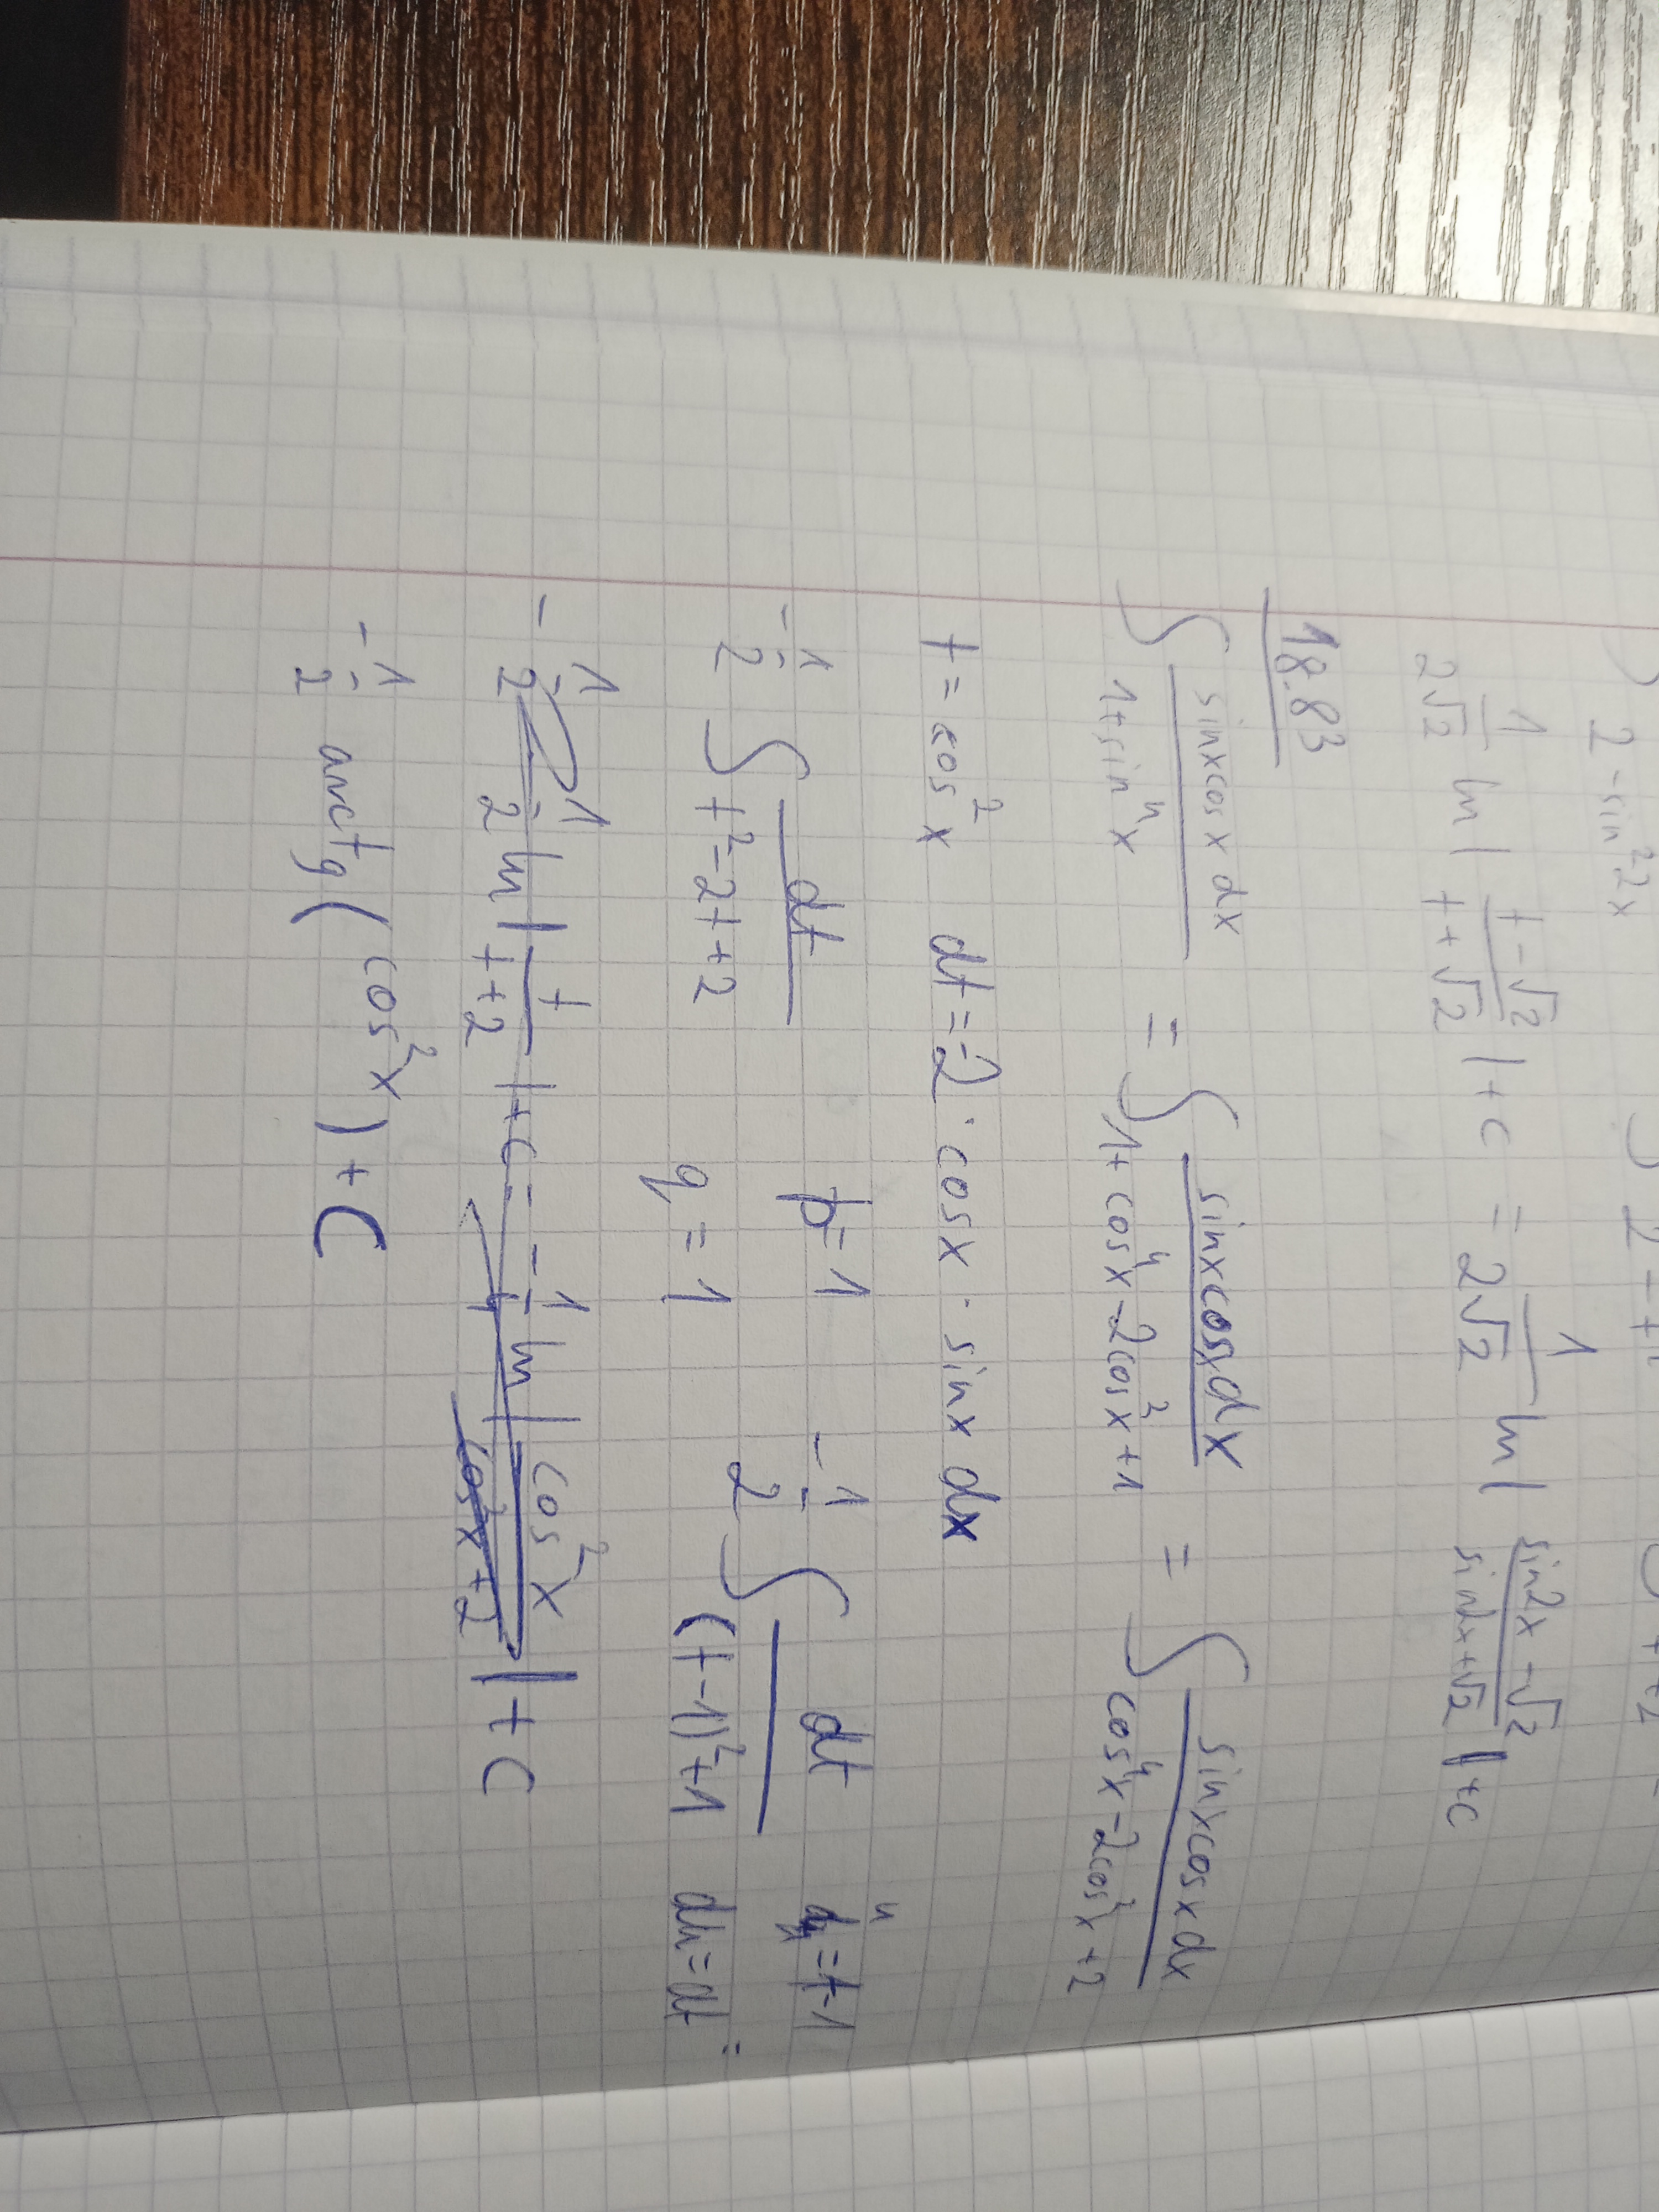 2 - sin²2x 2 - t²
1/(2√2) ln| (t - √2)/(t + √2) | + c = 1/(2√2) ln| (sin2x - √2)/(sin2x + √2) | + c
18.83
∫ sinxcosx dx/(1 + sin⁴x) = ∫ sinxcosxdx/(1 + cos⁴x - 2cos²x + 1) = ∫ sinxcosxdx/(cos⁴x - 2cos²x + 2)
t = cos²x dt = -2 · cosx · sinx dx
-1/2 ∫ dt/(t² - 2t + 2) p = 1 q = 1 -1/2 ∫ dt/((t - 1)² + 1) u = t - 1 du = dt =
-1/2 · 1/2 ln| t/(t + 2) | + c = -1/4 ln| cos²x/(cos²x + 2) | + C
-1/2 arctg(cos²x) + C